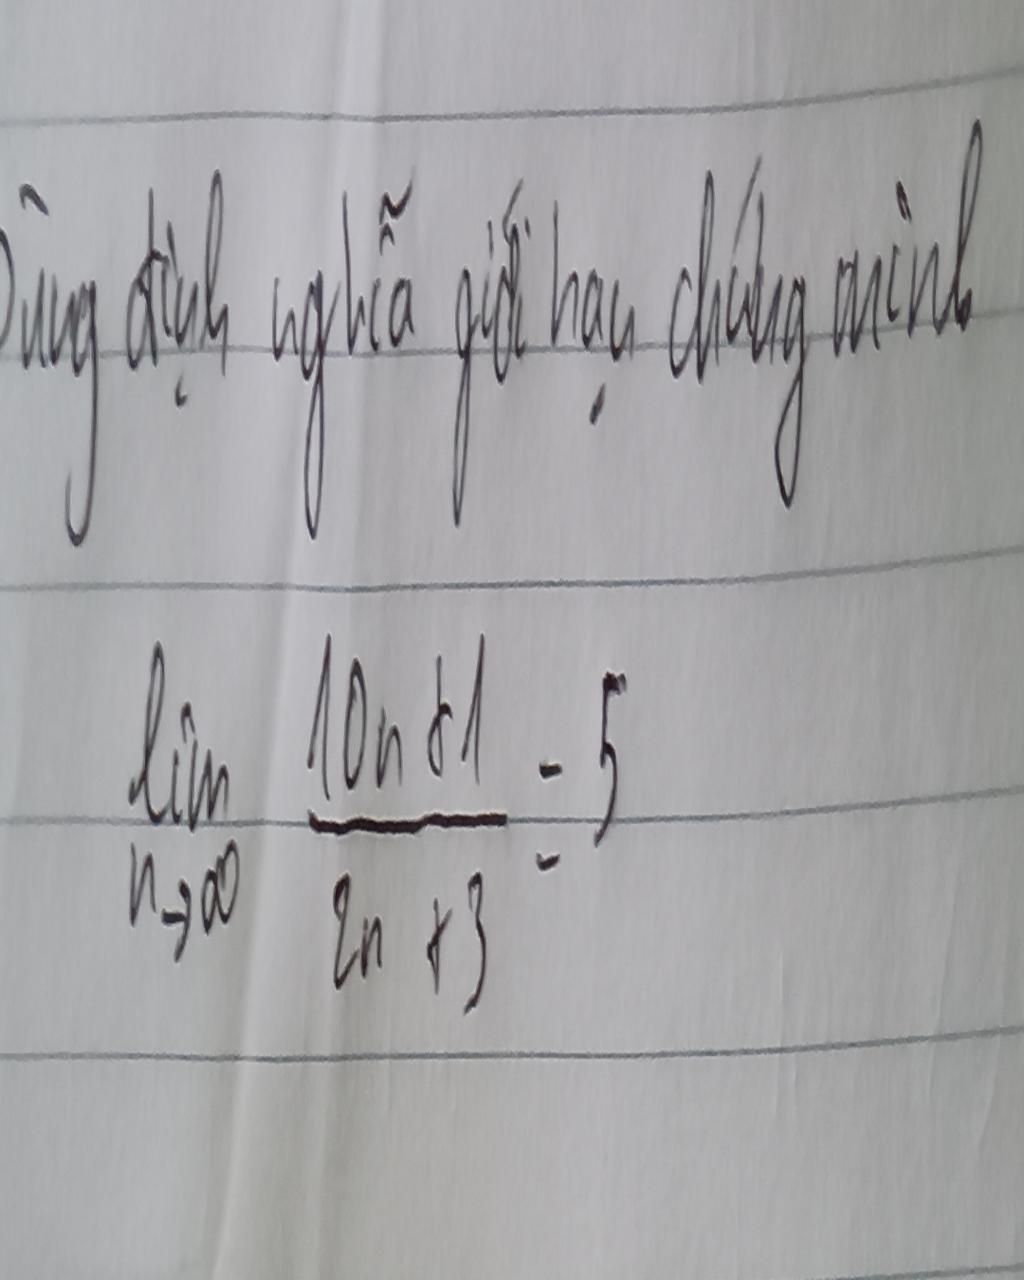 Dùng định nghĩa giới hạn chứng minh
lim 10n+1 / 2n+3 = 5
n→∞